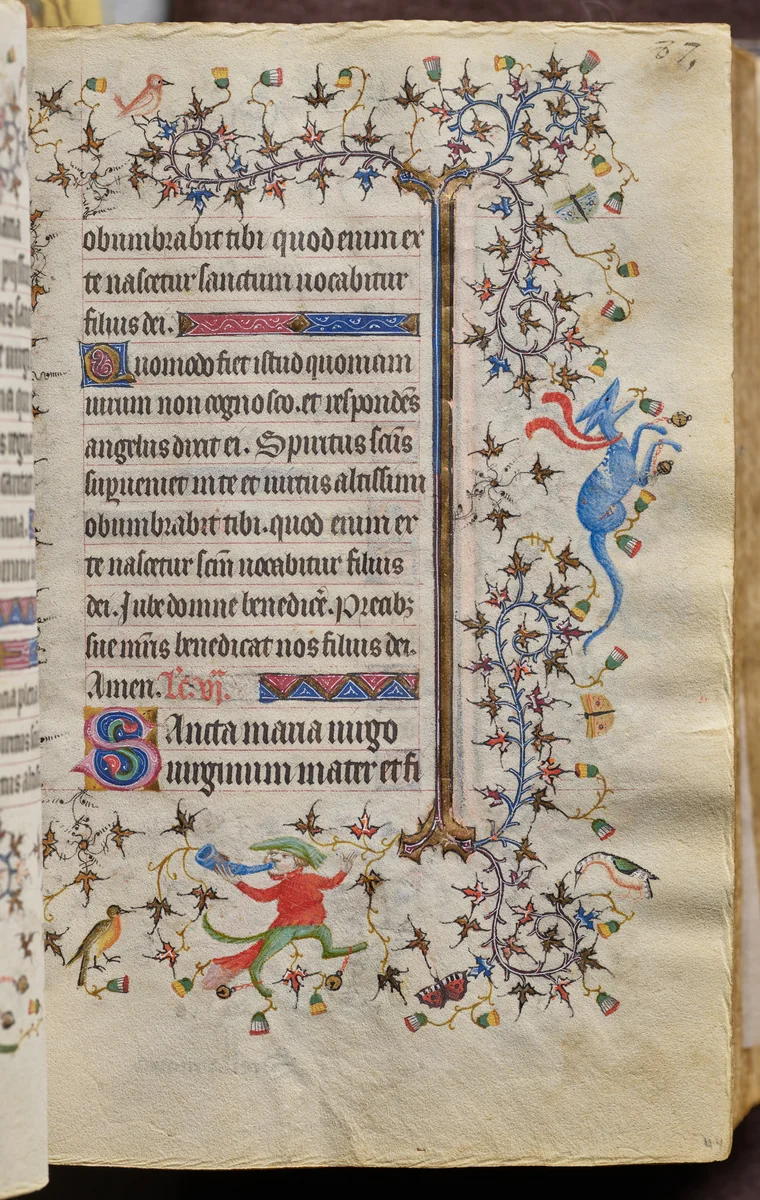 67.
obumbrabit tibi quod enim ex
te nascetur sanctum uocabitur
filius dei.
Quomodo fiet istud quoniam
uirum non cognosco. et respondēs
angelus dixit ei. Spiritus scūs
supueniet in te et uirtus altissimi
obumbrabit tibi. quod enim ex
te nascetur scm̄ uocabitur filius
dei. Jube domne benedicē. Precibꝫ
sue mr̄is benedicat nos filius dei.
Amen. Lc̄. vj.
SAncta maria uirgo
uirginum mater et fi
44